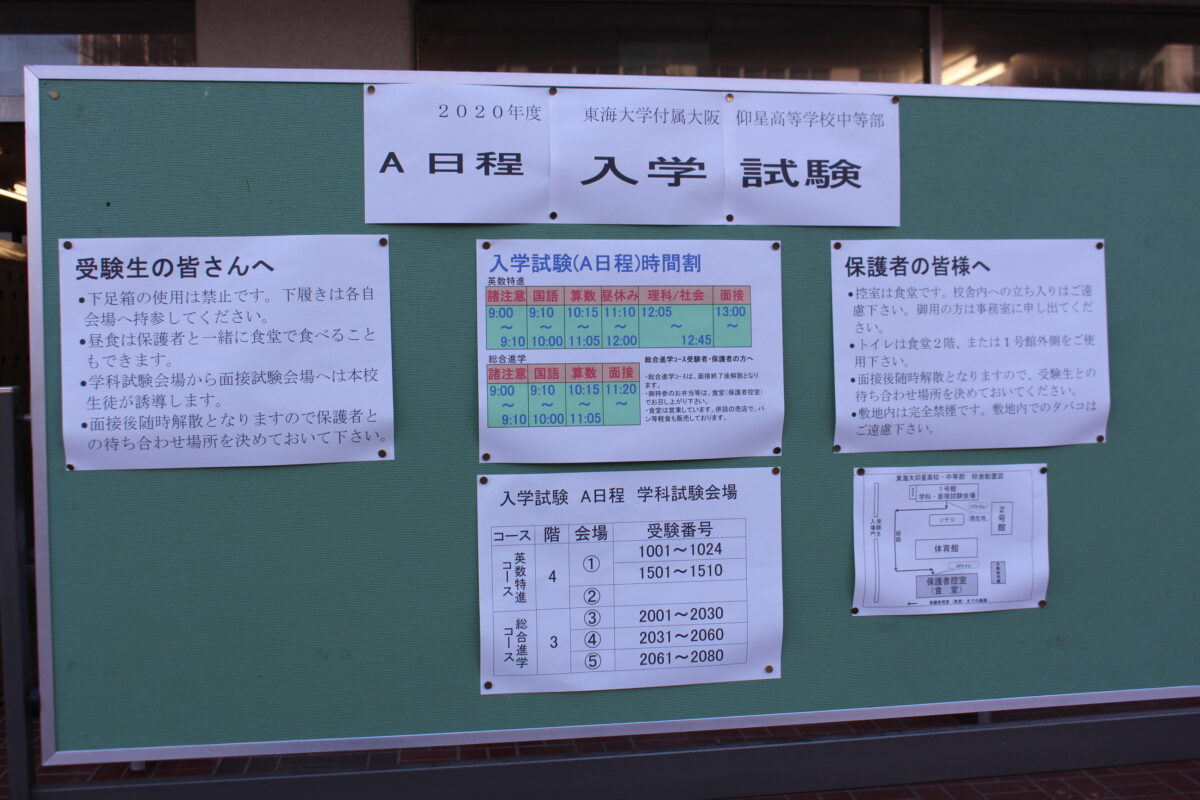 2020年度 東海大学付属大阪 仰星高等学校中等部
A 日程 入学 試験
受験生の皆さんへ
●下足箱の使用は禁止です。下履きは各自
会場へ持参してください。
●昼食は保護者と一緒に食堂で食べること
もできます。
●学科試験会場から面接試験会場へは本校
生徒が誘導します。
●面接後随時解散となりますので保護者と
の待ち合わせ場所を決めておいて下さい。
入学試験(A日程)時間割
英数特進
諸注意 国語 算数 昼休み 理科/社会 面接
9:00 9:10 10:15 11:10 12:05 13:00
～ ～ ～ ～ ～ ～
9:10 10:00 11:05 12:00 12:45
総合進学
諸注意 国語 算数 面接
9:00 9:10 10:15 11:20
～ ～ ～ ～
9:10 10:00 11:05
総合進学コース受験者・保護者の方へ
・総合進学コースは、面接終了後解散となり
ます。
・御持参のお弁当等は、食堂(保護者控室)
でお召し上がり下さい。
・食堂は営業しています。併設の売店で、パ
ン等軽食も販売しております。
保護者の皆様へ
●控室は食堂です。校舎内への立ち入りはご遠
慮下さい。御用の方は事務室に申し出てくだ
さい。
●トイレは食堂２階、または１号館外側をご使
用下さい。
●面接後随時解散となりますので、受験生との
待ち合わせ場所を決めておいてください。
●敷地内は完全禁煙です。敷地内でのタバコは
ご遠慮下さい。
入学試験 A日程 学科試験会場
コース 階 会場 受験番号
英数特進コース 4 ① 1001～1024
1501～1510
②
総合進学コース 3 ③ 2001～2030
④ 2031～2060
⑤ 2061～2080
東海大仰星高校・中等部 校舎配置図
１号館
学科・面接試験会場
ソテツ
現在地
２号館
体育館
保護者控室
(食 堂)